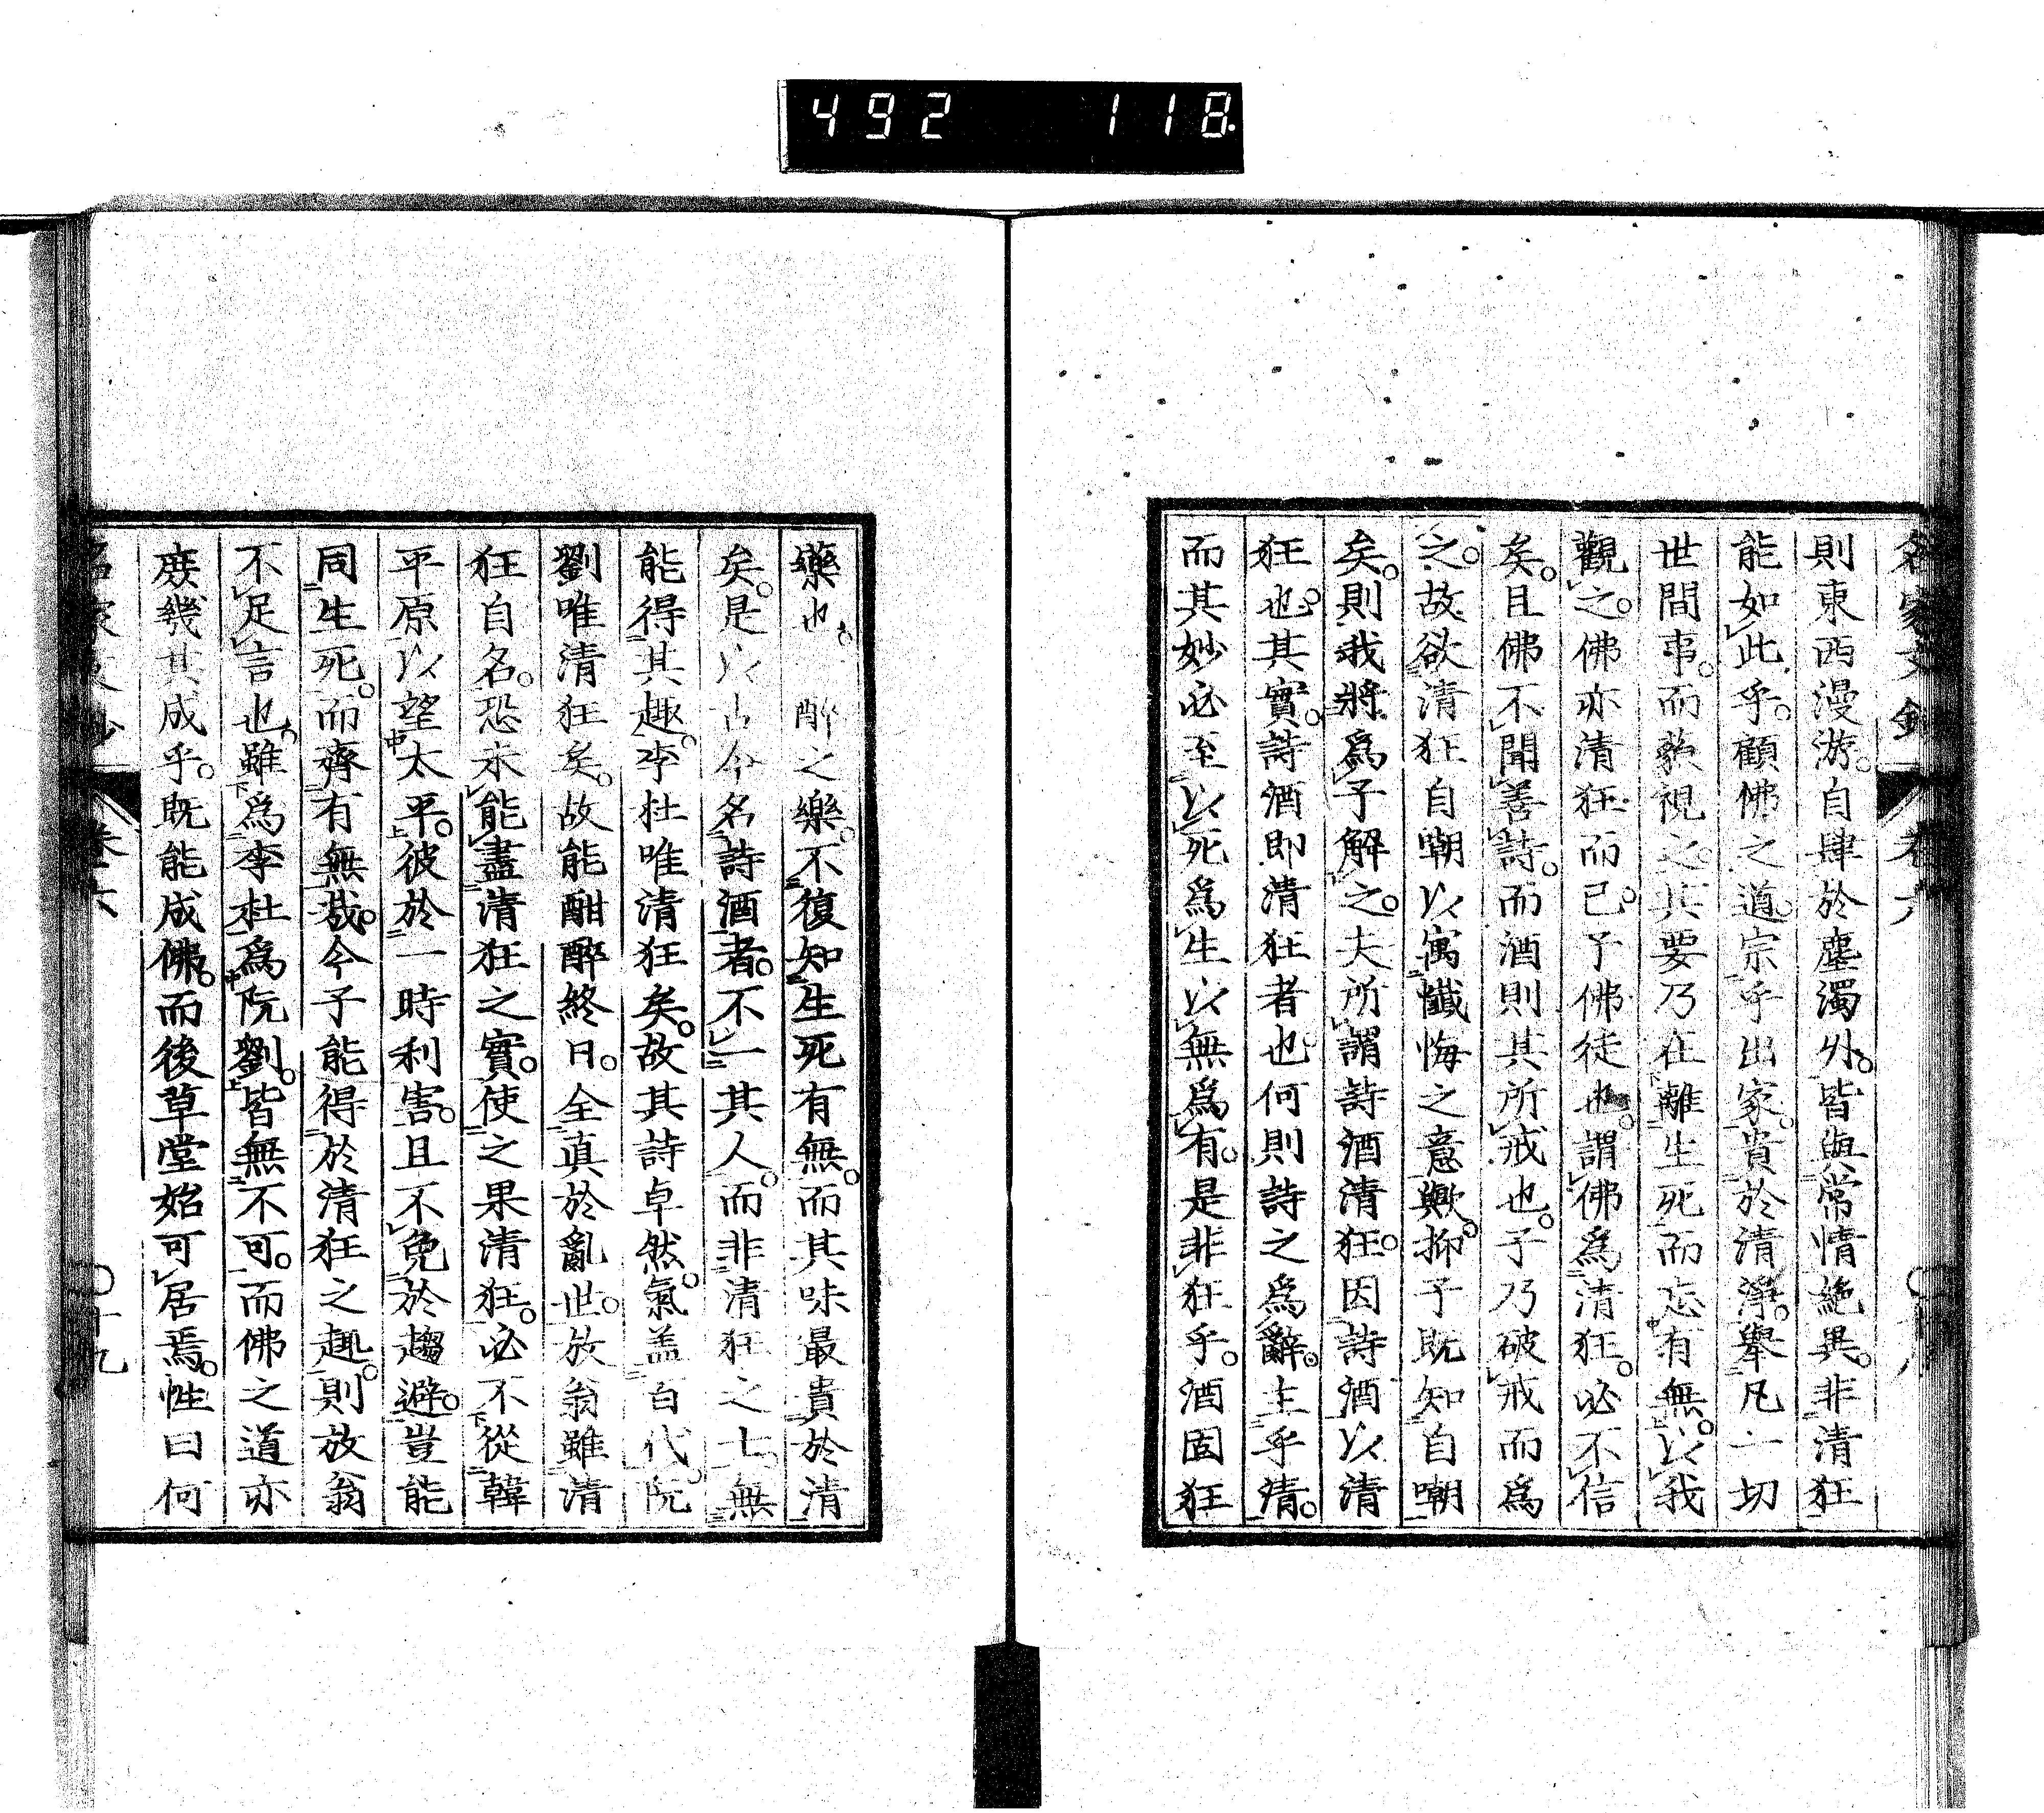 492 118
名家文鈔 卷六 ○十八
則東西漫游。自肆於塵濁外。皆與常情絶異。非清狂
能如此乎。顧佛之道。宗乎出家。貴於清淨。舉凡一切
世間事。而藐視之。其要乃在離生死而忘有無。以我
觀之。佛亦清狂而已。予佛徒也。謂佛爲清狂。必不信
矣。且佛不聞善詩。而酒則其所戒也。子乃破戒而爲
之。故欲清狂自嘲以寓懺悔之意歟。抑子既知自嘲
矣。則我將爲子解之。夫所謂詩酒清狂。因詩酒以清
狂也。其實。詩酒即清狂者也。何則詩之爲辭。主乎清。
而其妙必至以死爲生以無爲有。是非狂乎。酒固狂
藥也。 醉之樂。不復知生死有無。而其味最貴於清
矣。是以古今名詩酒者。不一其人。而非清狂之士。無
能得其趣。李杜唯清狂矣。故其詩卓然。氣盖百代。阮
劉唯清狂矣。故能酣醉終日。全眞於亂世。放翁雖清
狂自名。恐未能盡清狂之實。使之果清狂。必不從韓
平原以望太平。彼於一時利害。且不免於趨避。豈能
同生死。而齊有無哉。今子能得於清狂之趣。則放翁
不足言也。雖爲李杜爲阮劉。皆無不可。而佛之道亦
庶幾其成乎。既能成佛。而後草堂始可居焉。性曰何
名家文鈔 卷六 ○十九